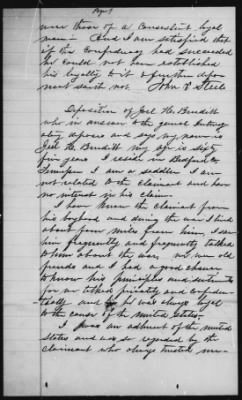 Page 7
were those of a consistent loyal
man — and I am satisfied that
if the Confederacy had succeeded
he could not have established
his loyalty to it & further depo-
nent saith not. John T Steele
Deposition of Joel H. Burditt
who in answer to the same Interrog-
atory deposes and says my name is
Joel H. Burditt my age is sixty
five years I reside in Bedford Co
Tennessee I am a saddler I am
not related to the claimant and have
no interest in his claim.
I have known the claimant from
his boyhood and during the war I lived
about four miles from him, I saw
him frequently and frequently talked
to him about the war, we were old
friends and I had a good chance
to know his principles and sentiments
for we talked privately and confiden-
tially and he was always loyal
to the cause of the United States.
I was an adherent of the United
States and was so regarded by the
claimant who always trusted me